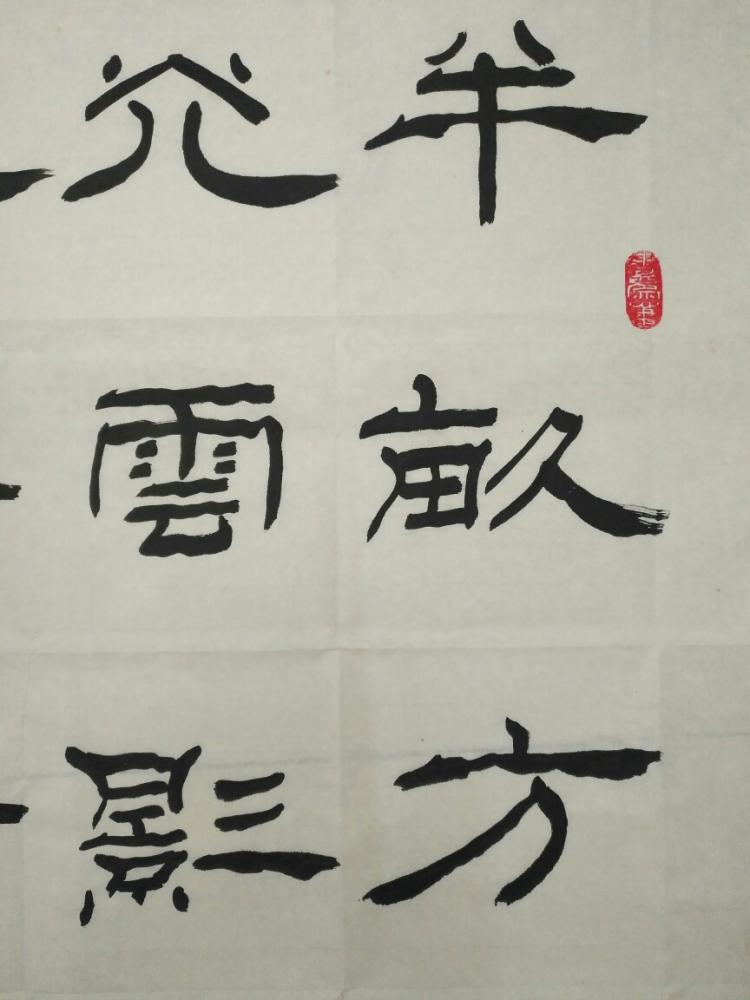 半畝方
光雲影